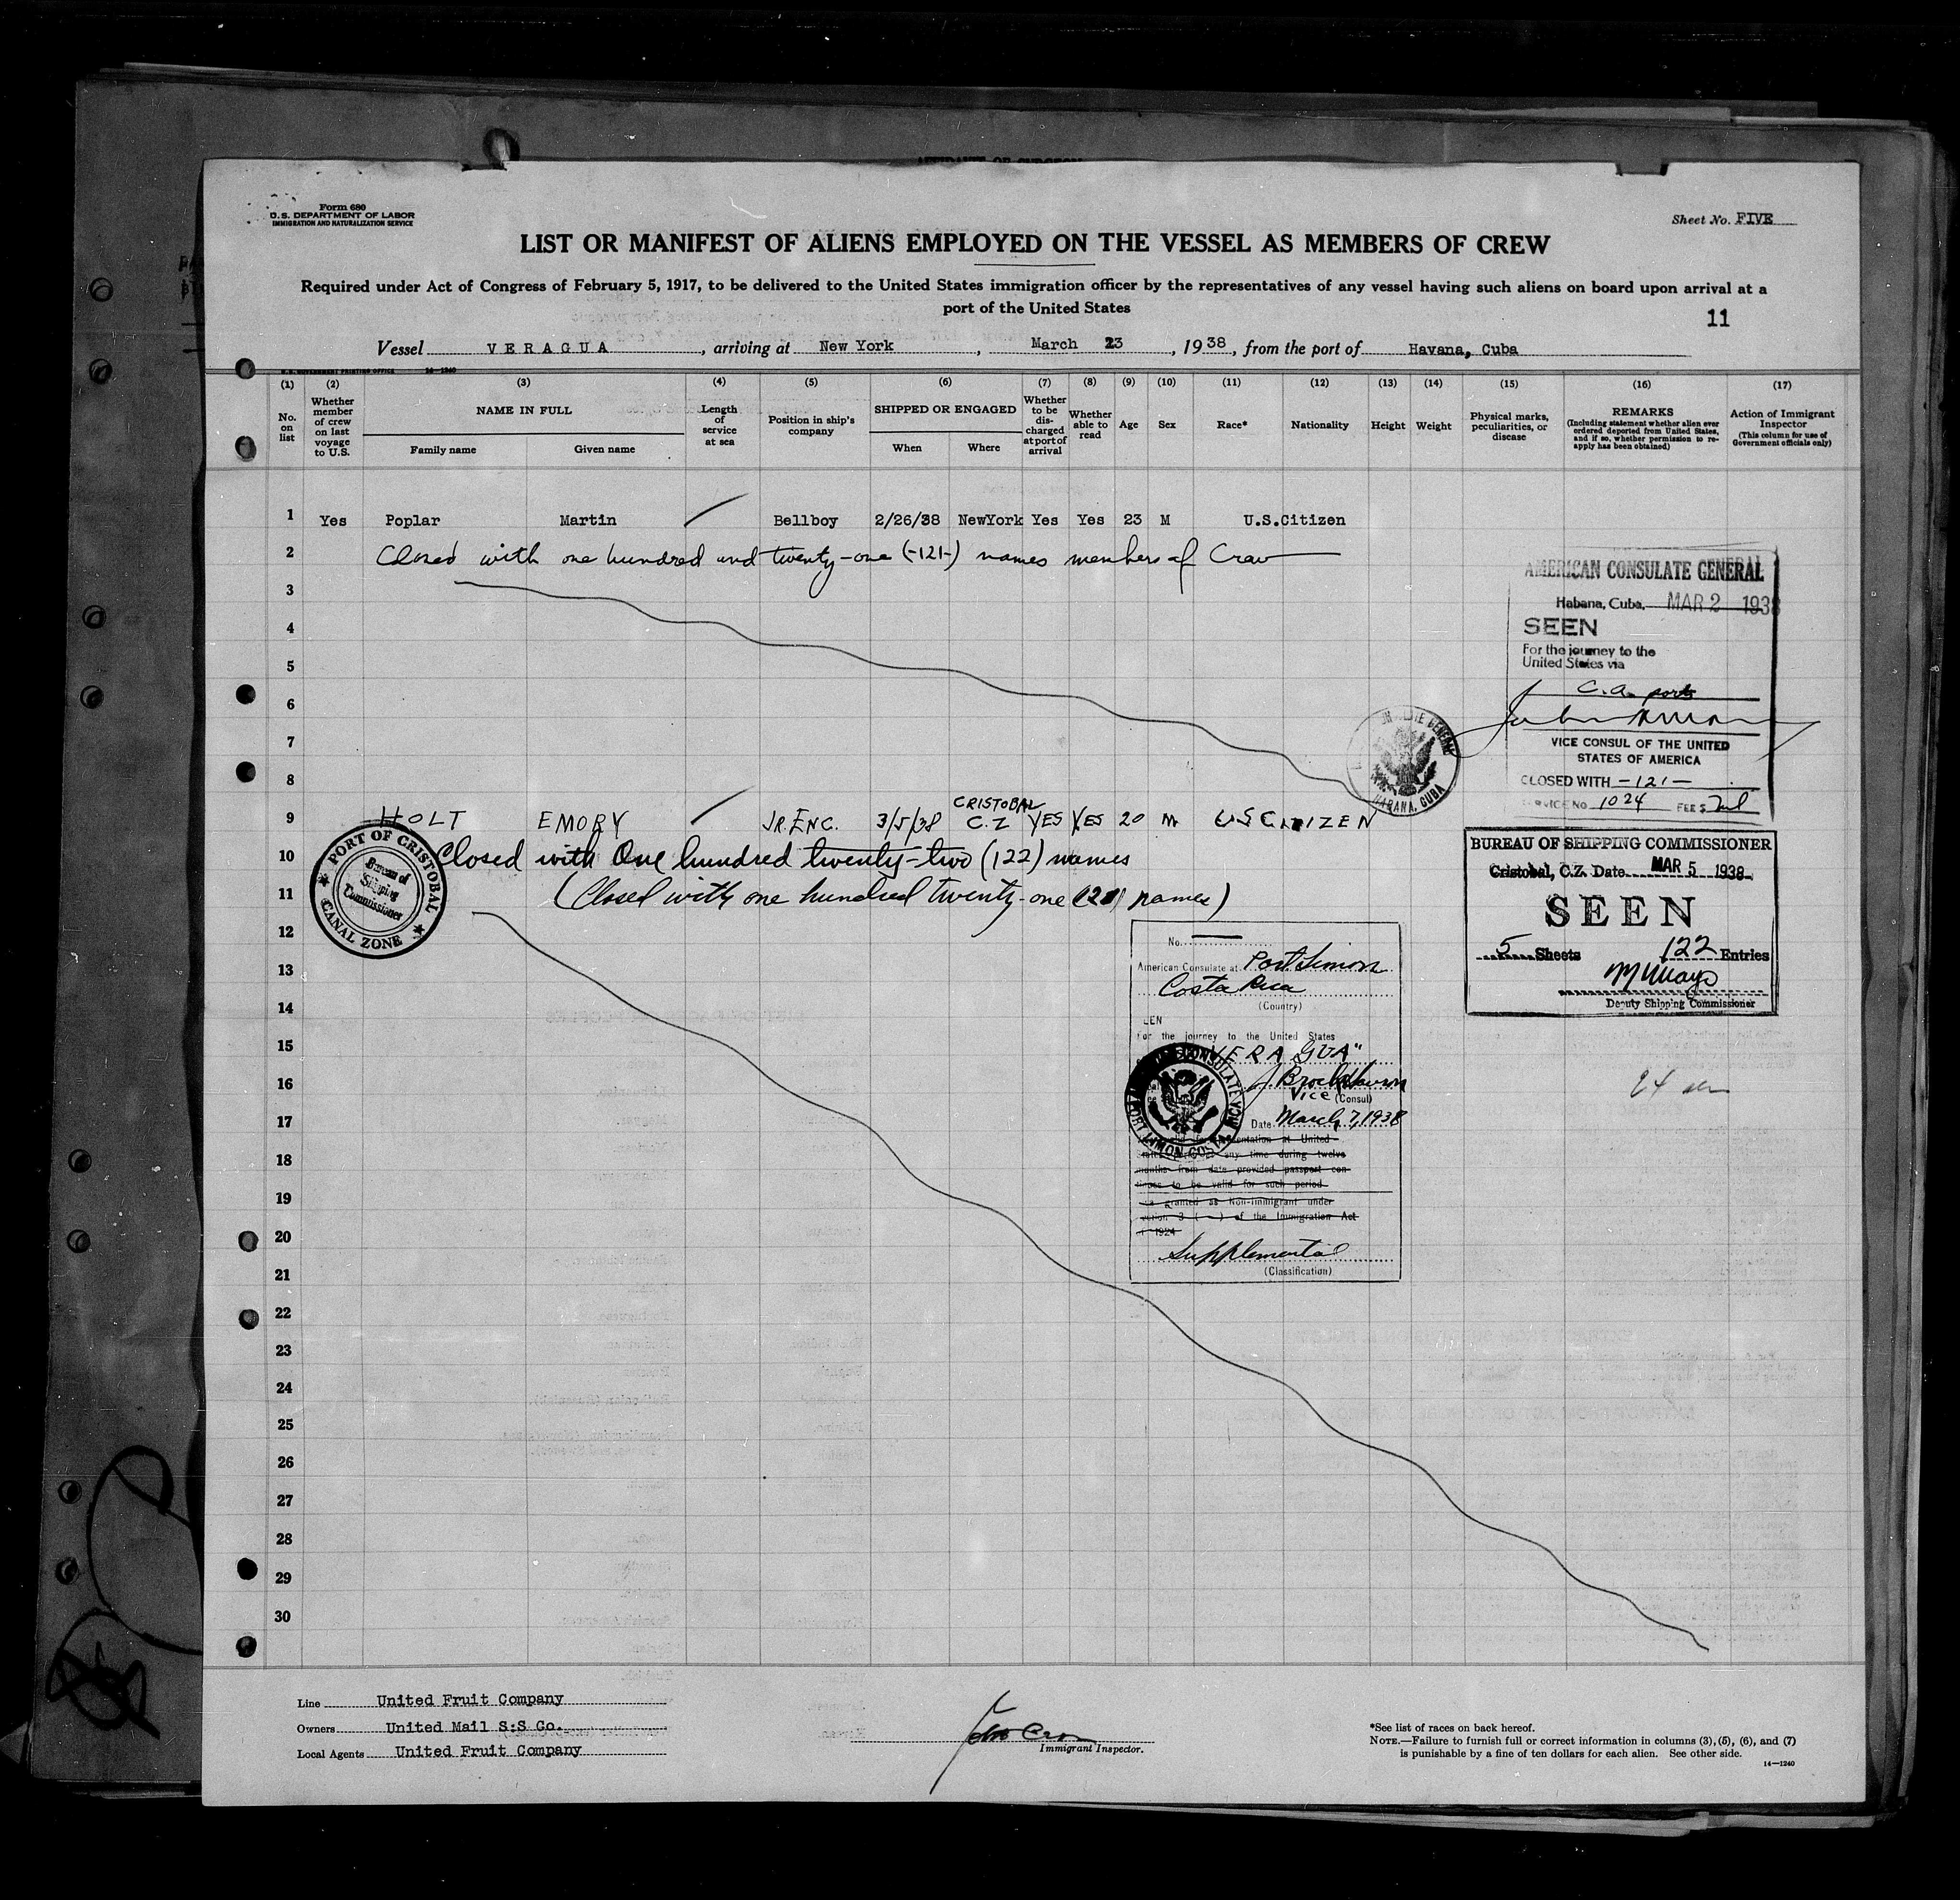 Form 680
U.S. DEPARTMENT OF LABOR
IMMIGRATION AND NATURALIZATION SERVICE
Sheet No. FIVE
LIST OR MANIFEST OF ALIENS EMPLOYED ON THE VESSEL AS MEMBERS OF CREW
Required under Act of Congress of February 5, 1917, to be delivered to the United States immigration officer by the representatives of any vessel having such aliens on board upon arrival at a
port of the United States
11
Vessel VERAGUA, arriving at New York, March 23, 1938, from the port of Havana, Cuba
U.S. GOVERNMENT PRINTING OFFICE 14—1240
(1) (2) (3) (4) (5) (6) (7) (8) (9) (10) (11) (12) (13) (14) (15) (16) (17)
No. on list
Whether member of crew on last voyage to U.S.
NAME IN FULL
Family name Given name
Length of service at sea
Position in ship's company
SHIPPED OR ENGAGED
When Where
Whether to be discharged at port of arrival
Whether able to read
Age
Sex
Race*
Nationality
Height
Weight
Physical marks, peculiarities, or disease
REMARKS
(Including statement whether alien ever ordered deported from United States, and if so, whether permission to re-apply has been obtained)
Action of Immigrant Inspector
(This column for use of Government officials only)
1 Yes Poplar Martin Bellboy 2/26/38 NewYork Yes Yes 23 M U.S.Citizen
2 Closed with one hundred and twenty-one (-121-) names members of Crew
3
4
5
6
7
8
AMERICAN CONSULATE GENERAL
Habana, Cuba, MAR 2 1938
SEEN
For the journey to the
United States via
C.A. ports
VICE CONSUL OF THE UNITED
STATES OF AMERICA
CLOSED WITH -121-
SERVICE No 1024 FEE $ Nil
HABANA, CUBA
9 HOLT EMORY JR.ENG. 3/5/38 CRISTOBAL C.Z YES YES 20 M US CITIZEN
10 Closed with One hundred twenty-two (122) names
11 (Closed with one hundred twenty-one (121) names)
PORT OF CRISTOBAL
Bureau of
Shipping
Commissioner
CANAL ZONE
BUREAU OF SHIPPING COMMISSIONER
Cristobal, C.Z. Date MAR 5 1938
SEEN
5 Sheets 122 Entries
Deputy Shipping Commissioner
12
13
14
15
16
17
18
19
20
21
22
23
24
25
26
27
28
29
30
No.
American Consulate at Port Limon
Costa Rica
(Country)
EEN
For the journey to the United States
VERAGUA"
Vice (Consul)
Date March 7, 1938
any time during twelve
months from date provided passport con-
tinues to be valid for such period
granted as Non-Immigrant under
3 ( ) of the Immigration Act
1924
Supplemental
(Classification)
24
Line United Fruit Company
Owners United Mail S:S Co.
Local Agents United Fruit Company
Immigrant Inspector.
*See list of races on back hereof.
NOTE.—Failure to furnish full or correct information in columns (3), (5), (6), and (7)
is punishable by a fine of ten dollars for each alien. See other side.
14—1240